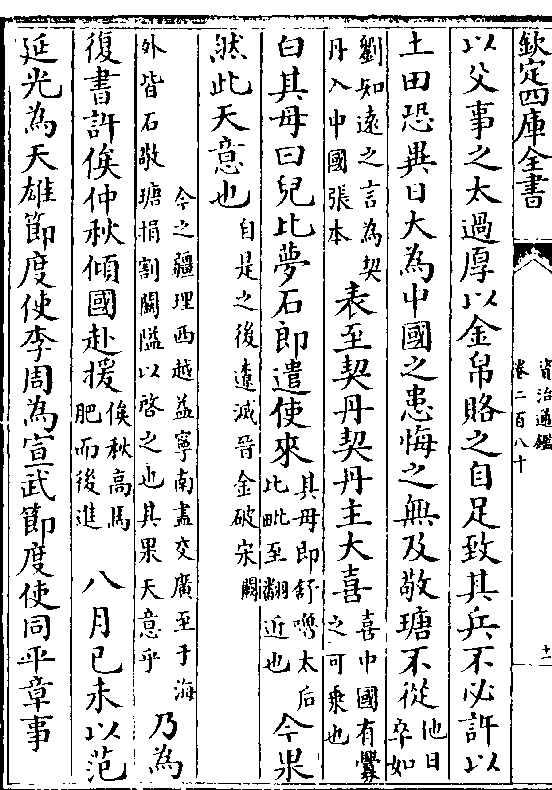 欽定四庫全書
資治通鑑
卷二百八十
十一
以父事之太過厚以金帛賂之自足致其兵不必許以
土田恐異日大為中國之患悔之無及敬瑭不從他日卒如
劉知遠之言為契丹入中國張本表至契丹契丹主大喜喜中國有釁之可乘也
白其母曰兒比夢石郎遣使來其母即舒嚕太后比毗至翻近也今果
然此天意也自是之後遼滅晉金破宋闕
今之疆理西越益寧南盡交廣至于海外皆石敬瑭捐割關隘以啓之也其果天意乎乃為
復書許俟仲秋傾國赴援俟秋高馬肥而後進八月己未以范
延光為天雄節度使李周為宣武節度使同平章事